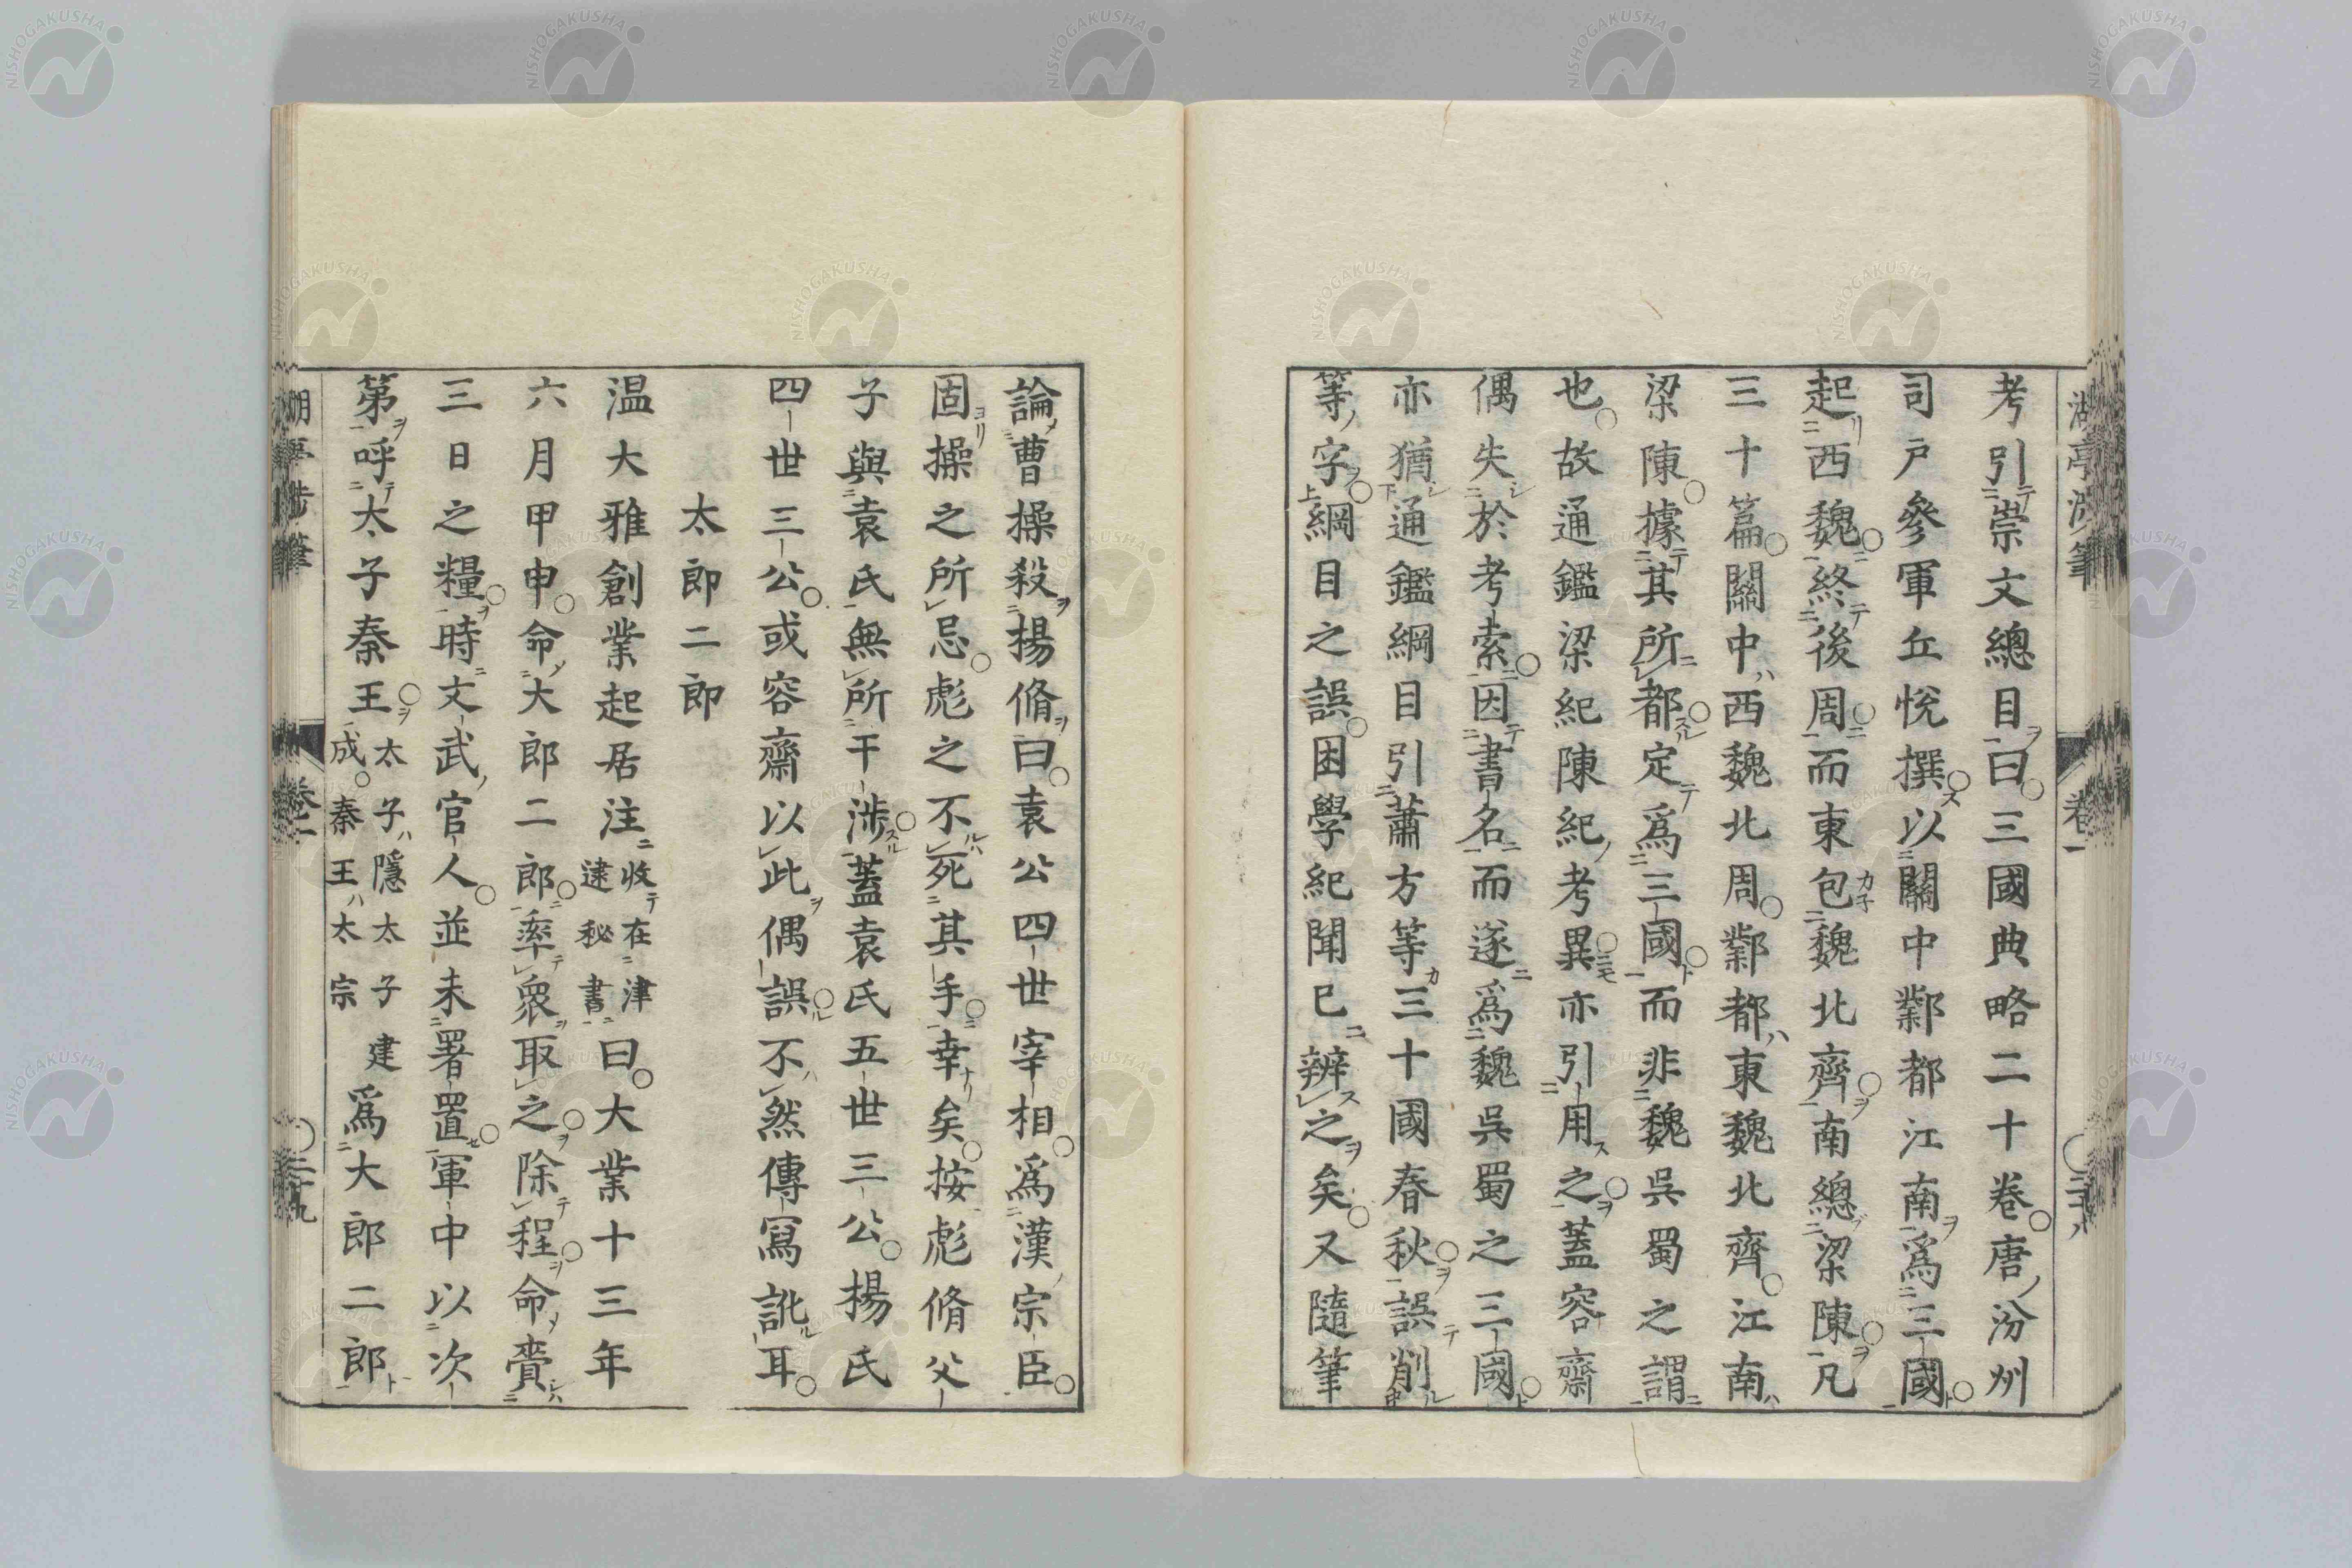 考引崇文總目曰三國典略二十卷唐汾州
司戶參軍丘悅撰以關中鄴都江南爲三國
起西魏終後周而東包魏北齊南總梁陳凡
三十篇關中西魏北周鄴都東魏北齊江南
梁陳據其所都定爲三國而非魏吳蜀之謂
也故通鑑梁紀陳紀考異亦引用之蓋容齋
偶失於考索因書名而遂爲魏吳蜀之三國
亦猶通鑑綱目引蕭方等三十國春秋誤削
等字綱目之誤困學紀聞已辨之矣又隨筆
論曹操殺揚脩曰袁公四世宰相爲漢宗臣
固操之所忌彪之不死其手幸矣按彪脩父
子與袁氏無所干涉蓋袁氏五世三公揚氏
四世三公或容齋以此偶誤不然傳寫訛耳
太郎二郎
温大雅創業起居注收在津逮秘書曰大業十三年
六月甲申命大郎二郎率衆取之除程命賚
三日之糧時文武官人並未署置軍中以次
第呼太子秦王太子ハ隱太子建成秦王ハ太宗爲大郎二郎
卷一
NISHOGAKUSHA